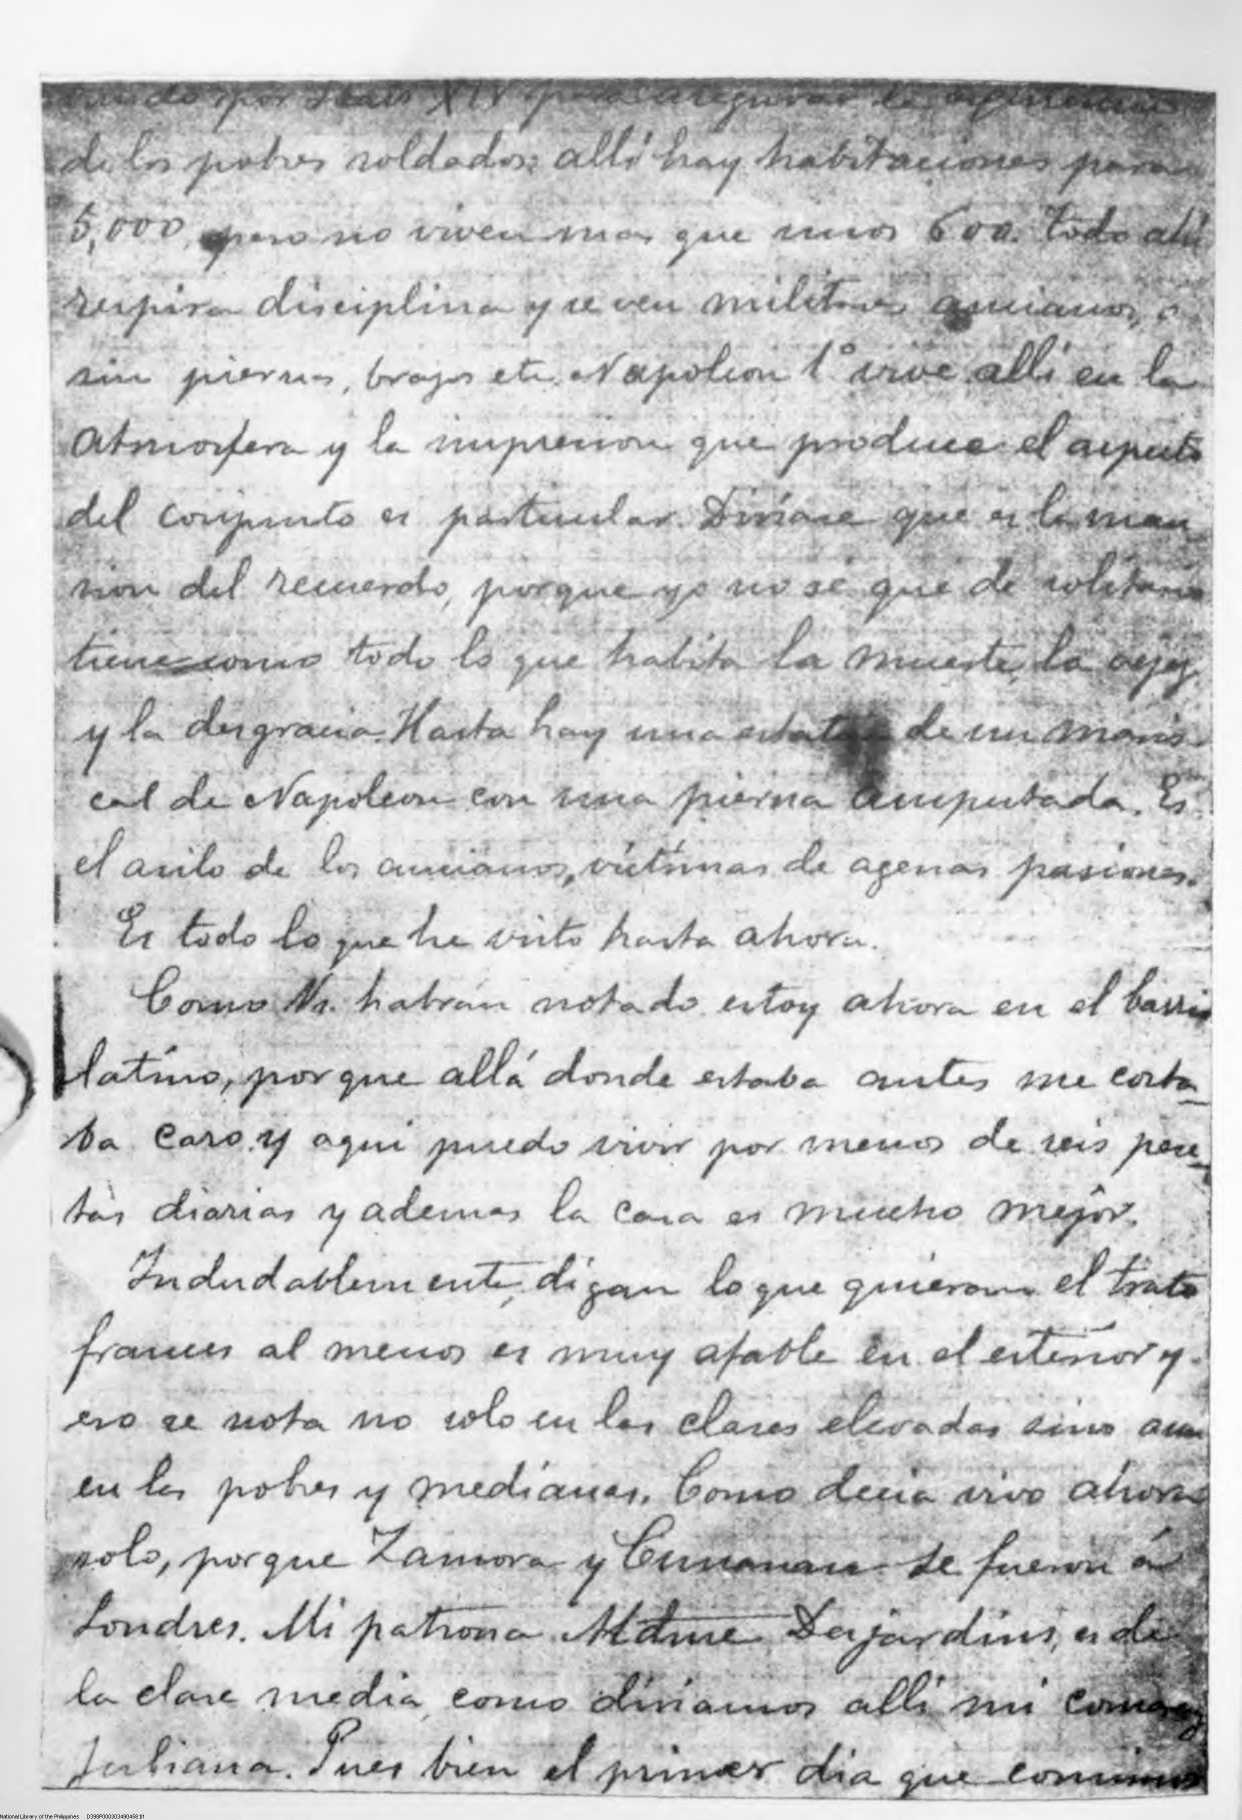 por Luis XIV para asegurar la
de los pobres soldados; allí hay habitaciones para
5,000, pero no viven mas que unos 600. Todo ahí
respira disciplina y se ven militares ancianos, ó
sin piernas, brazos etc. Napoleon 1º vive allí en la
atmosfera y la impresion que produce el aspecto
del conjunto es particular. Diríase que es la man
sion del recuerdo, porque yo no sé que de solitario
tiene como todo lo que habita la muerte, la vejez
y la desgracia. Hasta hay una estatua de un maris-
cal de Napoleon con una pierna amputada. Es
el asilo de los ancianos, víctimas de agenas pasiones.
Es todo lo que he visto hasta ahora.
Como Vs. habrán notado estoy ahora en el barrio
latino, porque allá donde estaba antes me costa-
ba caro y aqui puedo vivir por menos de seis pese-
tas diarias y ademas la casa es mucho mejor.
Indudablemente, digan lo que quieran el trato
frances al menos es muy afable en el exterior y
eso se nota no solo en las clases elevadas sino aun
en las pobres y medianas. Como decia vivo ahora
solo, porque Zamora y Cunanan se fueron á
Londres. Mi patrona Mdme Desjardins, es de
la clase media, como diriamos allí mi comare
Juliana. Pues bien el primer dia que comimos
National Library of the Philippines D399P000303490458:f:1